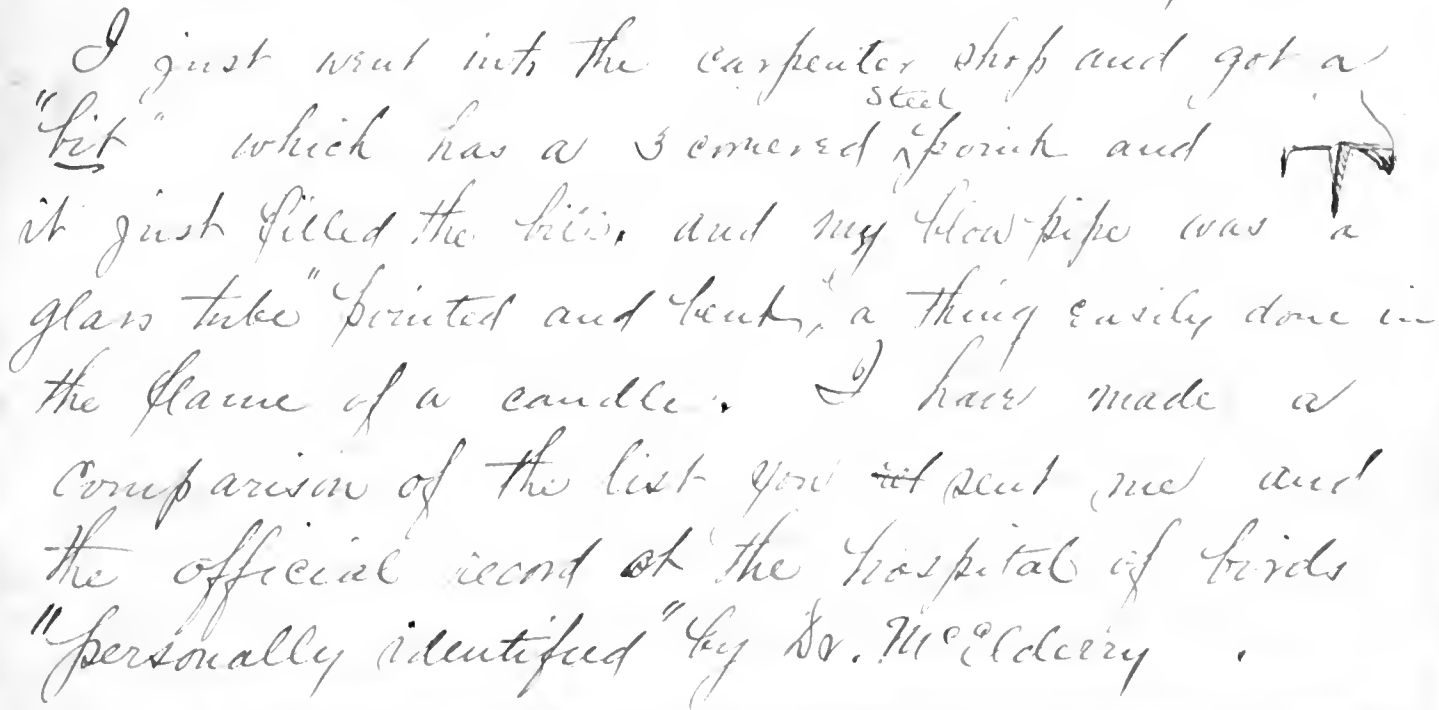 I just went into the carpenter shop and got a
"bit" which has a 3 cornered ^Steel point and
it just filled the bill, and my blow pipe was a
glass tube "pointed and bent," a thing easily done in
the flame of a candle. I have made a
comparison of the list you sent me and
the official record at the hospital of birds
"personally identified" by Dr. McElderry .